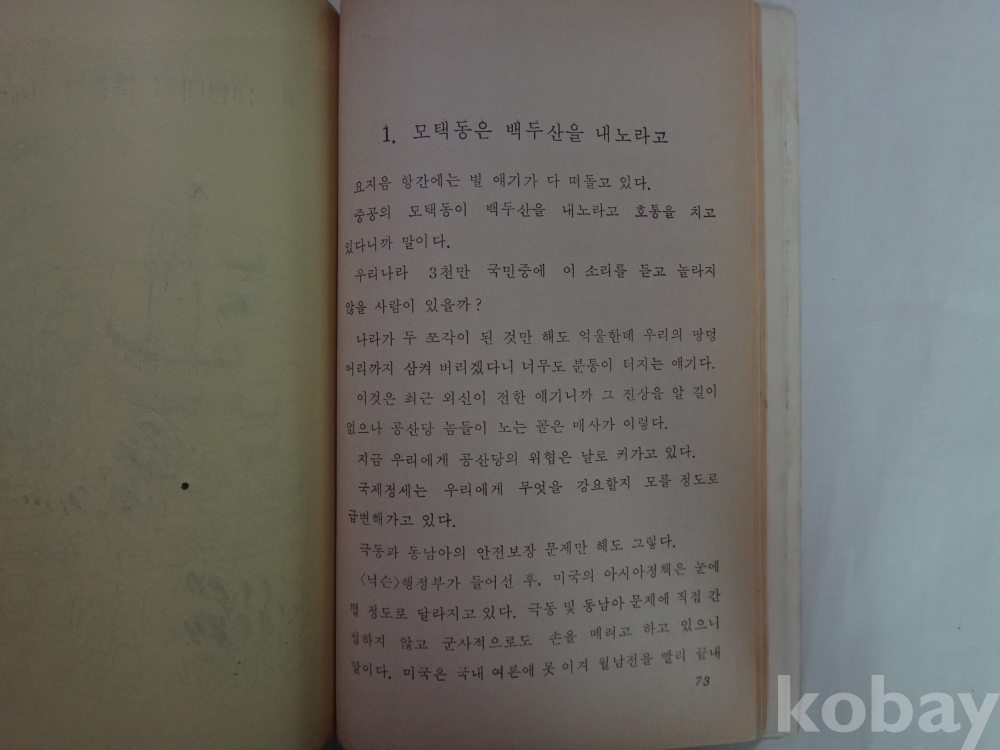 1. 모택동은 백두산을 내노라고
요지음 항간에는 별 얘기가 다 떠돌고 있다.
중공의 모택동이 백두산을 내노라고 호통을 치고
있다니까 말이다.
우리나라 3천만 국민중에 이 소리를 듣고 놀라지
않을 사람이 있을까?
나라가 두 쪼각이 된 것만 해도 억울한데 우리의 땅덩
어리까지 삼켜 버리겠다니 너무도 분통이 터지는 얘기다.
이것은 최근 외신이 전한 얘기니까 그 진상을 알 길이
없으나 공산당 놈들이 노는 꼴은 매사가 이렇다.
지금 우리에게 공산당의 위협은 날로 커가고 있다.
국제정세는 우리에게 무엇을 강요할지 모를 정도로
급변해가고 있다.
극동과 동남아의 안전보장 문제만 해도 그렇다.
〈닉슨〉행정부가 들어선 후, 미국의 아시아정책은 눈에
띌 정도로 달라지고 있다. 극동 및 동남아 문제에 직접 간
섭하지 않고 군사적으로도 손을 떼려고 하고 있으니
말이다. 미국은 국내 여론에 못 이겨 월남전을 빨리 끝내
73
kobay